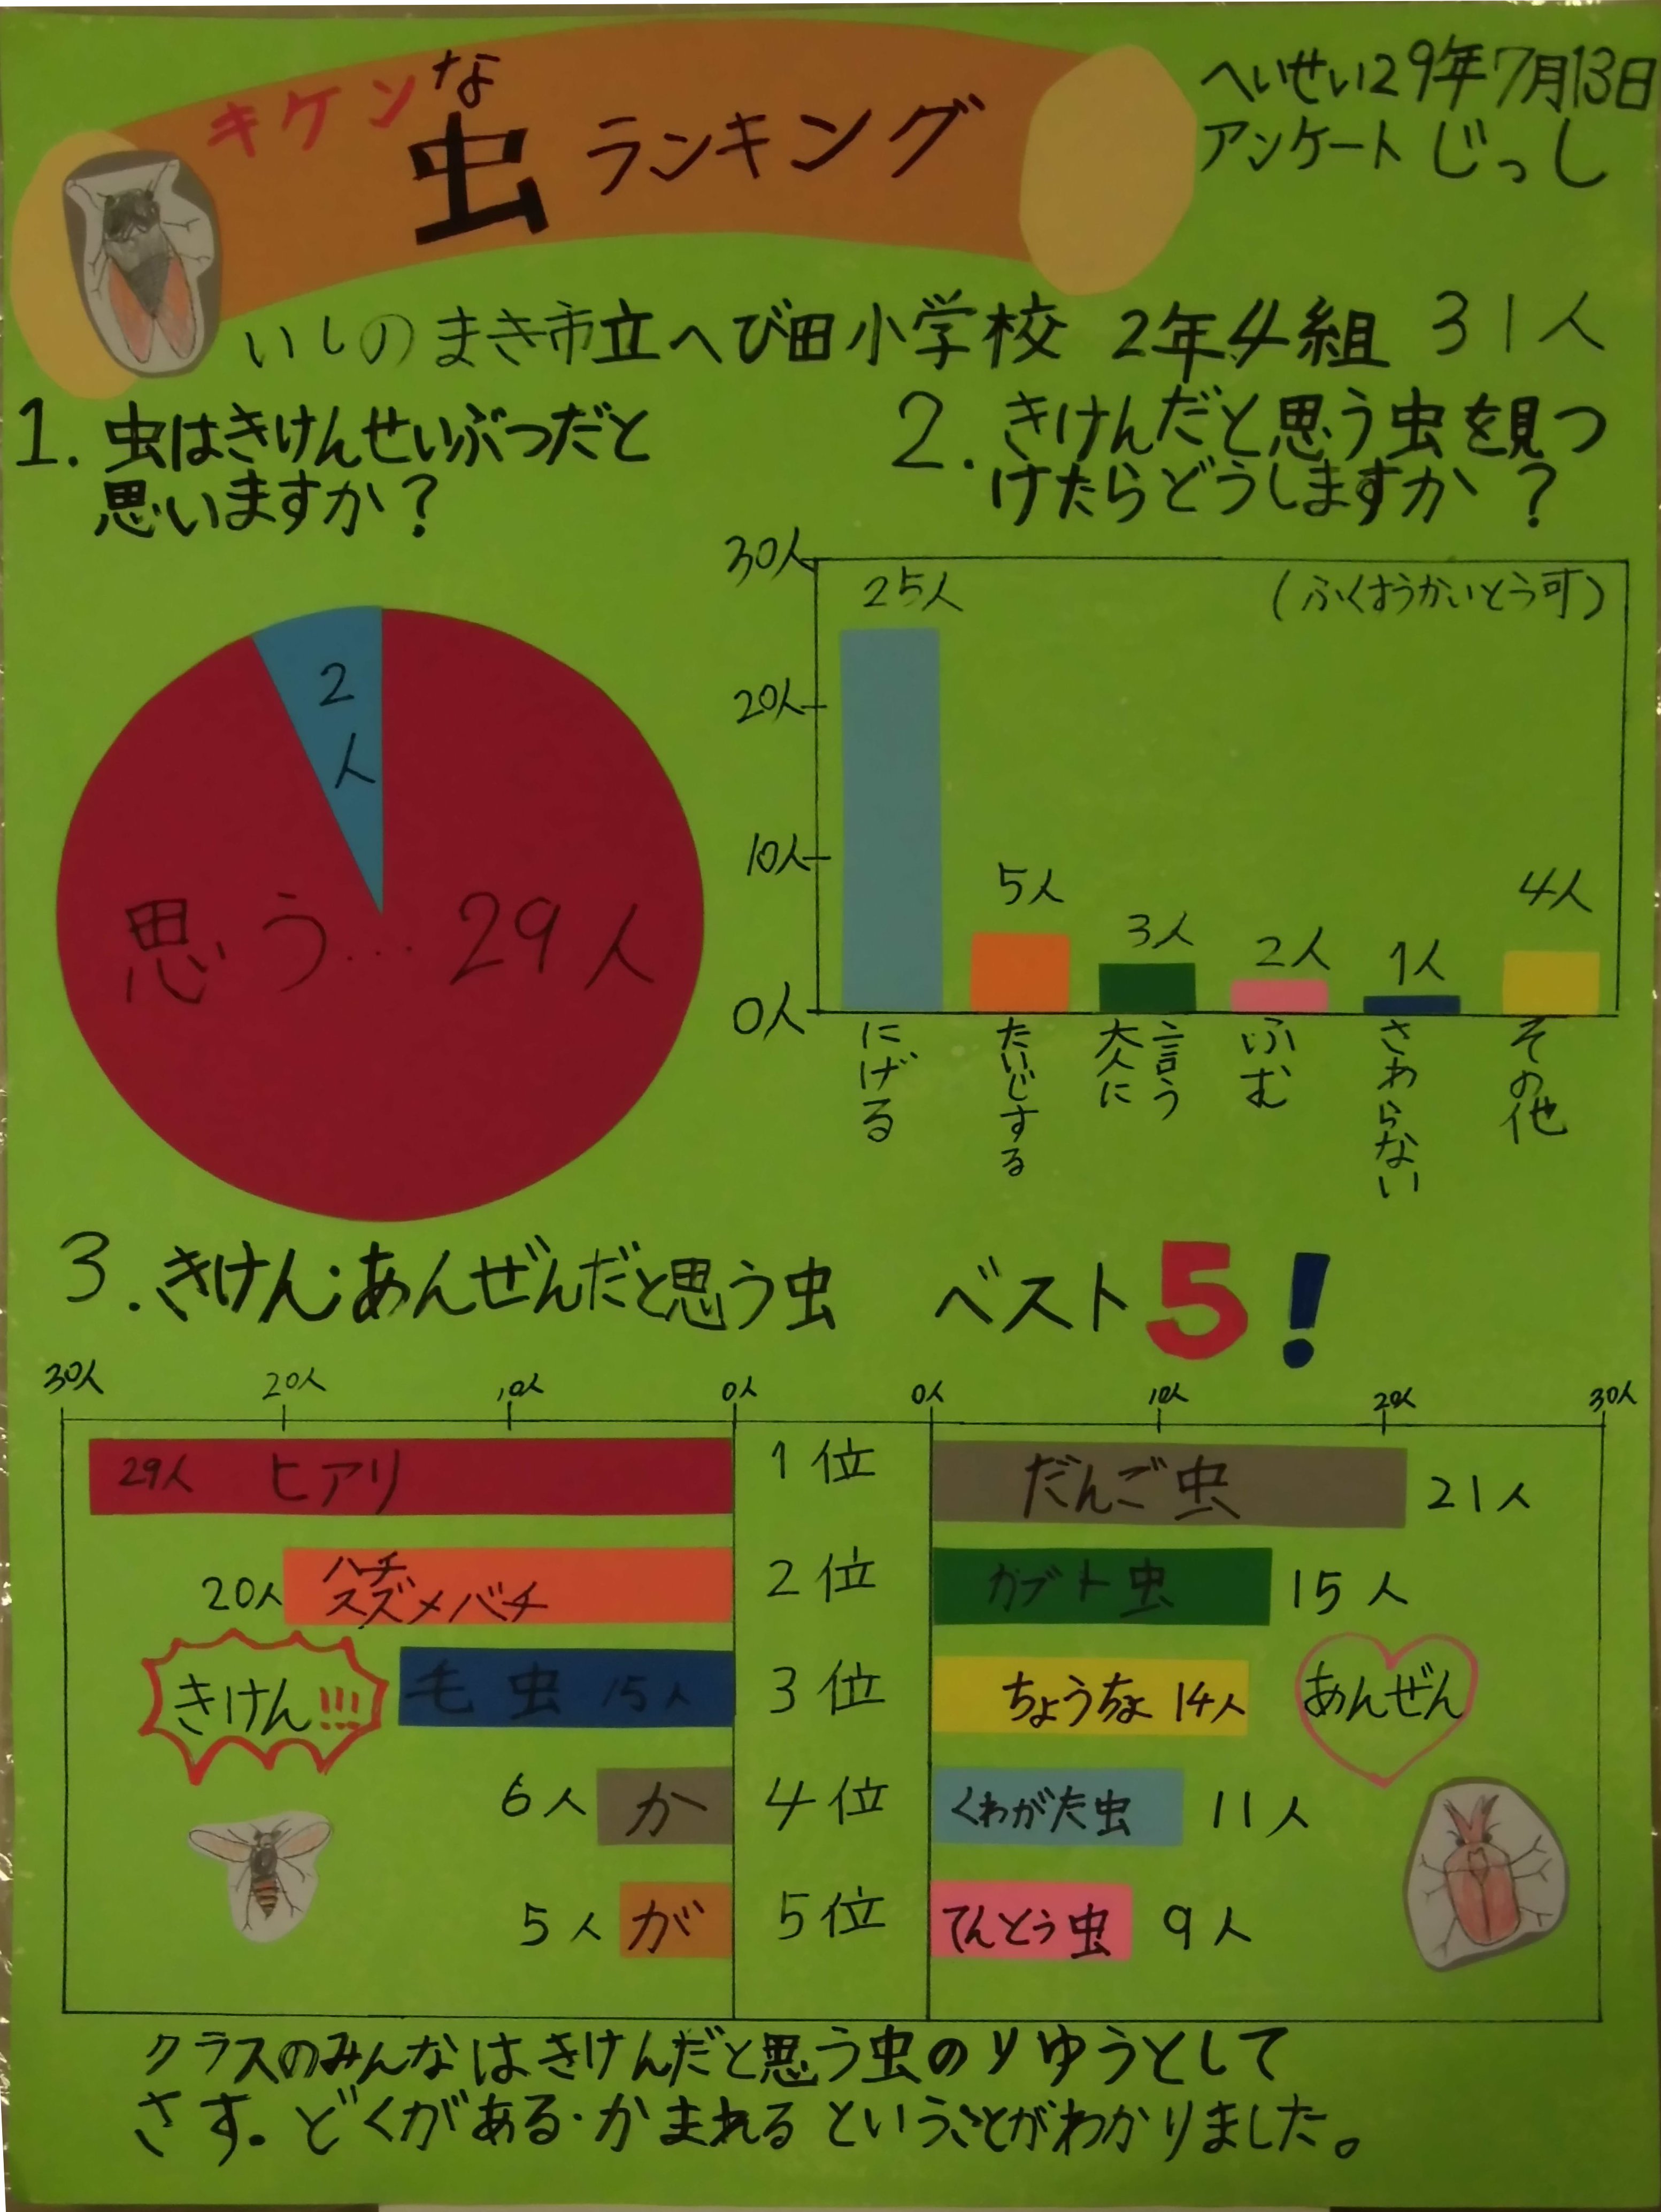 キケンな
虫ランキング
へいせい29年7月13日
アンケートじっし
いしのまき市立へび田小学校 2年4組 31人
1. 虫はきけんせいぶつだと
思いますか?
2人
思う…29人
2. きけんだと思う虫を見つ
けたらどうしますか?
(ふくすうかいとう可)
30人
20人
10人
0人
25人
5人
3人
2人
1人
4人
にげる
たいじする
大人に
言う
ふむ
さわらない
その他
3. きけん・あんぜんだと思う虫 ベスト5!
30人 20人 10人 0人 0人 10人 20人 30人
29人 ヒアリ 1位 だんご虫 21人
ハチ
20人 スズメバチ 2位 カブト虫 15人
毛虫 15人 3位 ちょうちょ 14人
きけん!!!
あんぜん
6人 か 4位 くわがた虫 11人
5人 が 5位 てんとう虫 9人
クラスのみんなはきけんだと思う虫のりゆうとして
さす。どくがある・かまれるということがわかりました。